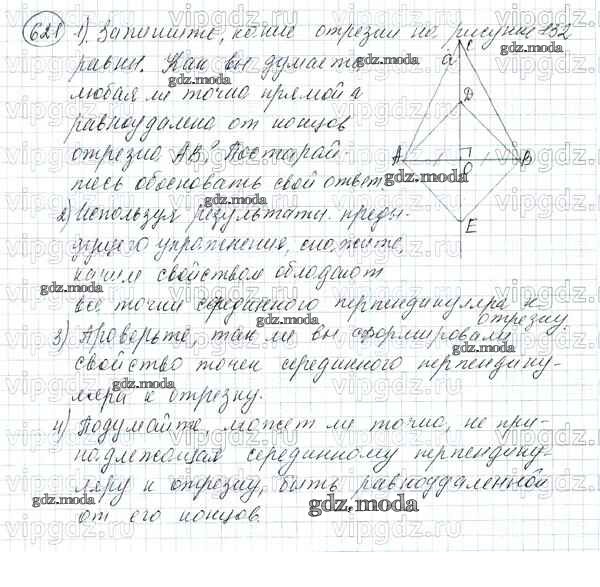 621 1). Запишите, какие отрезки на рисунке 152
равны. Как вы думаете,
любая ли точка прямой a
равноудалена от концов
отрезка AB? Постарай-
тесь обосновать свой ответ
2) Используя результаты преды-
дущего упражнения, скажите,
каким свойством обладают
все точки серединного перпендикуляра к
отрезку.
3) Проверьте, так ли вы сформировали
свойство точек серединного перпендику-
ляра к отрезку.
4) Подумайте, может ли точка, не при-
надлежащая серединному перпендику-
ляру к отрезку, быть равноудаленной
от его концов.
C
a
D
A
O
B
E
gdz.moda
gdz.moda
gdz.moda
gdz.moda
gdz.moda
gdz.moda
gdz.moda
gdz.moda
gdz.moda
gdz.moda
gdz.moda
vipgdz.ru